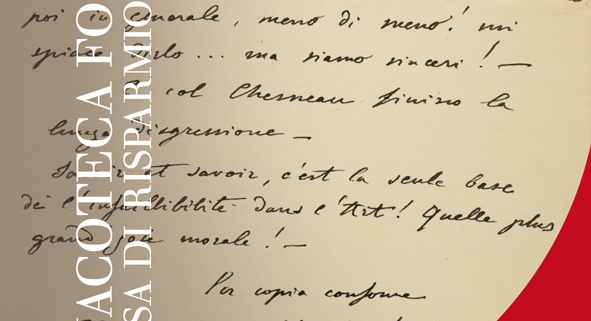 poi in generale, meno di meno! mi
spiace dirlo ... ma siamo sinceri! —
E col Chesneau finisco la
lunga disgressione —
Savoir et savoir, c'est la seule base
de l'infaillibilité dans l'Art! Quelle plus
grand joie morale! —
Per copia conforme
NACOTECA FO
SA DI RISPARMIO